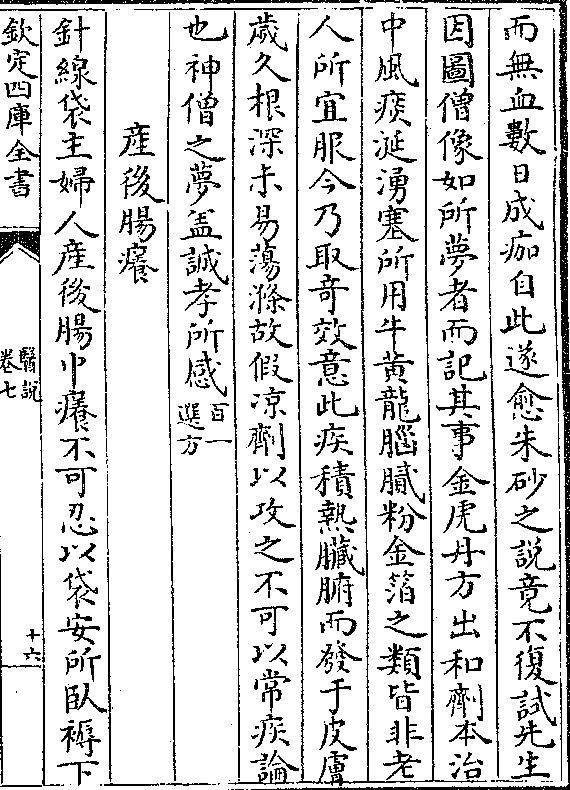 而無血數日成痂自此遂愈朱砂之説竟不復試先生
因圖僧像如所夢者而記其事金虎丹方出和劑本治
中風痰涎湧塞所用牛黄龍腦膩粉金箔之類皆非老
人所宜服今乃取奇效意此疾積熱臟腑而發于皮膚
歲久根深未易蕩滌故假凉劑以攻之不可以常疾論
也神僧之夢盖誠孝所感百一選方
産後腸癢
針線袋主婦人産後腸中癢不可忍以袋安所臥褥下
欽定四庫全書
醫説
卷七
十六